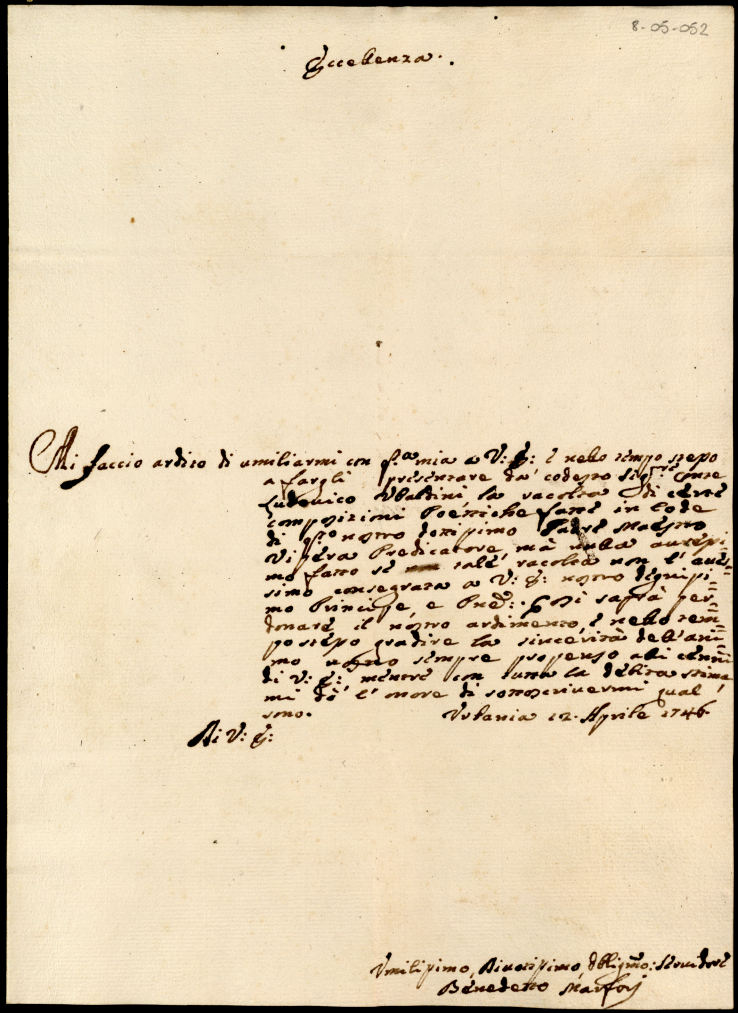 8-05-052
Eccellenza.
Mi faccio ardito di umiliarmi con q.ta mia a V: E: e nello tempo stesso
a fargli presentare da codesto Sig.re Conte
Ludovico Ubaldini, la racolta di certe
composizioni Poettiche fatte in lode
di q.to nostro dottissimo Padre Maestro
Vipera Predicatore, mà nulla auressi=
mo fatto se tale racolta non l'aues=
simo consegrata a V: E: nostro degnissi=
mo Principe, e Così saprà per=
donare il nostro ardimento, e nello tem=
po stesso gradire la sincerità dell'ani=
mo nostro sempre propenso alli cenni
di V: E: mentre con tutta la debita stima
mi dò l'onore di sottoscrivermi qual
sono. Urbania 12. Aprile 1746.
Di V: E:
Umilissimo, Divotissimo, Obligmo: Servidore
Benedetto